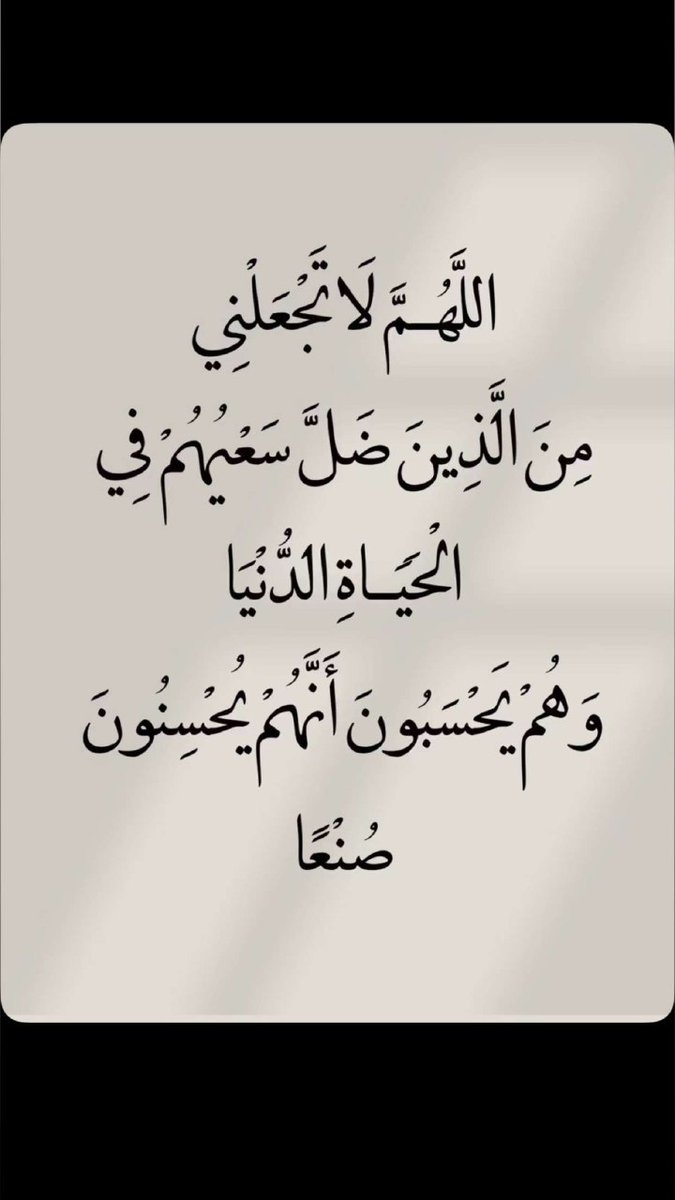 اللَّهُـمَّ لَا تَجْعَلْنِي
مِنَ الَّذِينَ ضَلَّ سَعْيُهُمْ فِي
الْحَيَـاةِ الدُّنْيَا
وَهُمْ يَحْسَبُونَ أَنَّهُمْ يُحْسِنُونَ
صُنْعًا